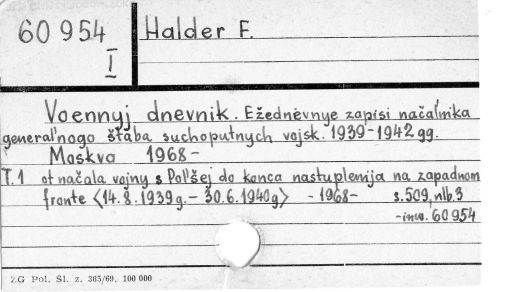 60954
I
Halder F.
Voennyj dnevnik. Eżednevnye zapisi načal'nika
general'nogo štaba suchoputnych vojsk. 1939-1942 gg.
Moskva 1968-
T.1 ot načala vojny s Pol'šej do konca nastuplenija na zapadnom
fronte <14.8.1939g. - 30.6.1940g> - 1968- s.509, nlb.3
-inw. 60954
ZG Pol. Śl. z. 365/69. 100 000